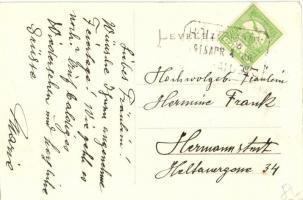 Liebes Fräulein!
Wünsche Ihnen angenehme
Feiertage! Wie geht es
noch? Auf baldiges
Wiedersehen und herzliche
Grüsse
Marie
LEVELEZŐ
Hochwolgeb. Fräulein
Hermine Frank
Hermannstadt
Heltauergasse 34